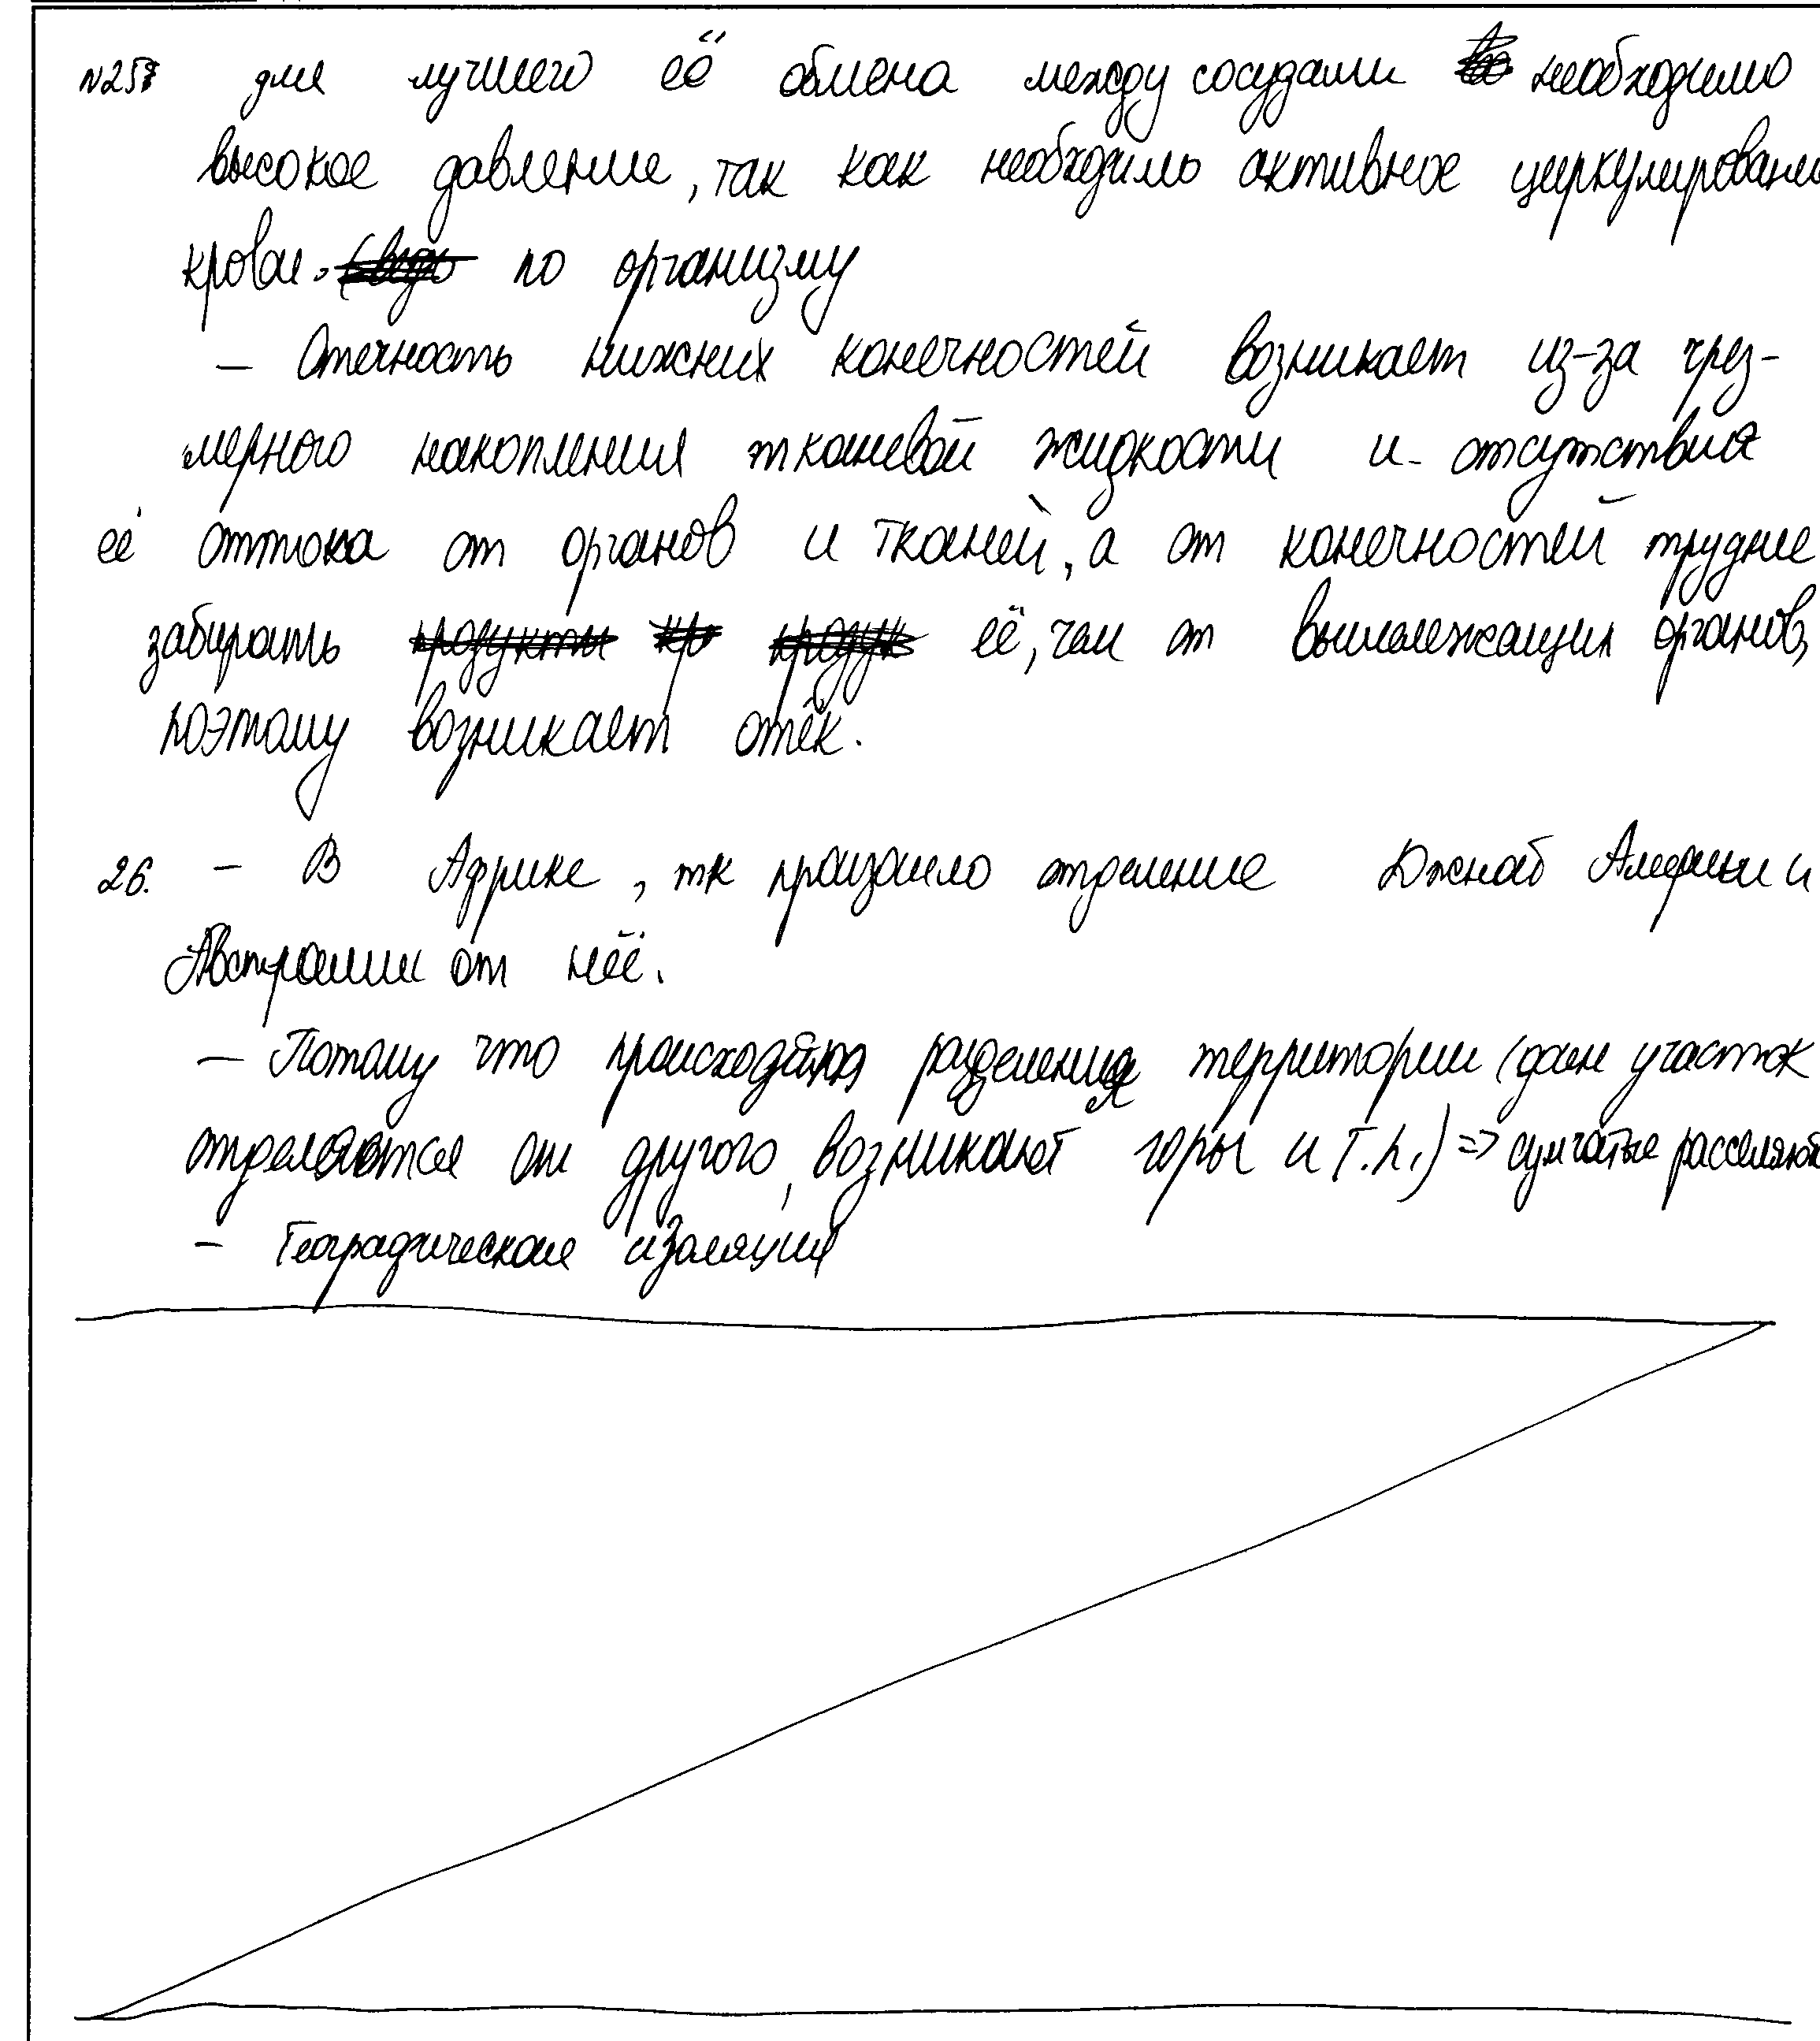 №25 для лучшего её обмена между сосудами необходимо
высокое давление, так как необходимо активное циркулировань
крови по организму
– Отечность нижних конечностей возникает из-за чрез-
мерного накопления тканевой жидкости и отсутствия
её оттока от органов и тканей, а от конечностей труднее
забирать её, чем от вышележащих органов,
поэтому возникает отёк.
26. – В Африке, тк произошло отделение Южной Америки и
Австралии от неё.
– Потому что разделения территории (один участок
отделяется от другого, возникают горы и т.п.) => сумчатые расселяют
– Географическая изоляция